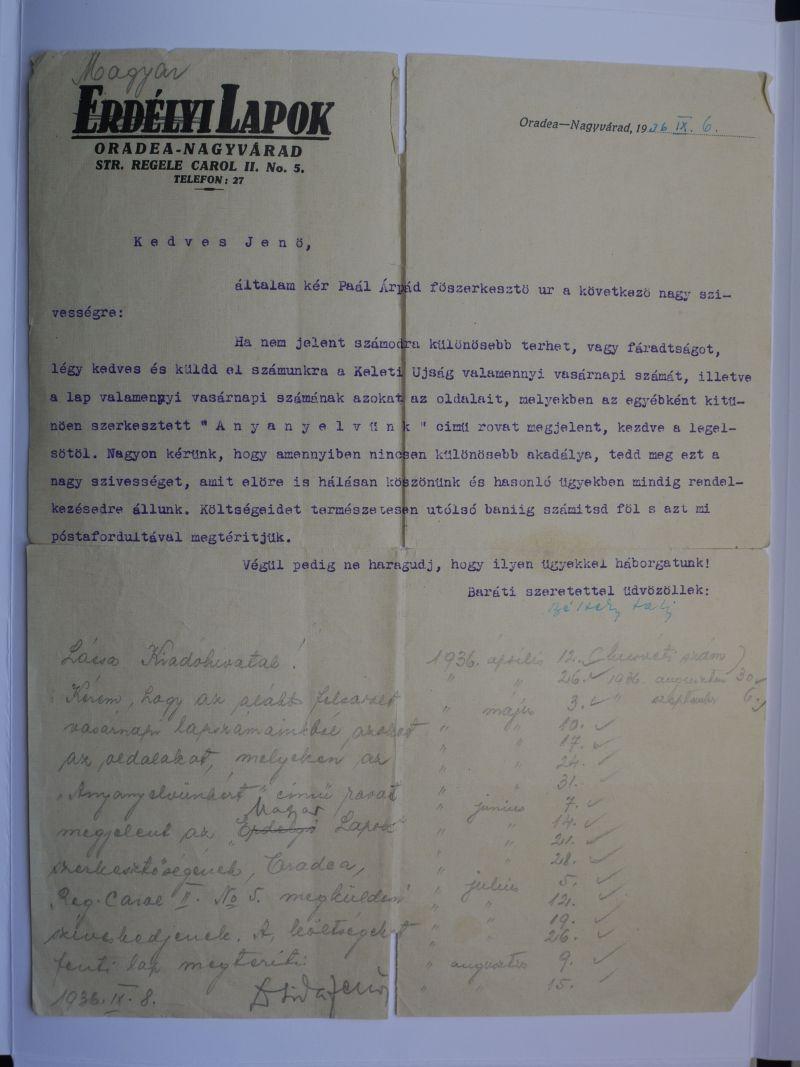 Magyar
ERDÉLYI LAPOK
ORADEA-NAGYVÁRAD
STR. REGELE CAROL II. No. 5.
TELEFON: 27
Oradea—Nagyvárad, 1936 IX. 6.
Kedves Jenő,
általam kér Paál Árpád főszerkesztő ur a következő nagy szi-
vességre:
Ha nem jelent számodra különösebb terhet, vagy fáradtságot,
légy kedves és küldd el számunkra a Keleti Ujság valamennyi vasárnapi számát, illetve
a lap valamennyi vasárnapi számának azokat az oldalait, melyekben az egyébként kitü-
nően szerkesztett "Anyanyelvünk" cimü rovat megjelent, kezdve a legel-
sőtől. Nagyon kérünk, hogy amennyiben nincsen különösebb akadálya, tedd meg ezt a
nagy szivességet, amit előre is hálásan köszönünk és hasonló ügyekben mindig rendel-
kezésedre állunk. Költségeidet természetesen utólsó baniig számitsd föl s azt mi
póstafordultával megtéritjük.
Végül pedig ne haragudj, hogy ilyen ügyekkel háborgatunk!
Baráti szeretettel üdvözöllek:
Kiadóhivatal!
Kérem, hogy az alább felsorolt
vasárnapi lapszámainkból azokat
az oldalakat, melyeken az
"Anyanyelvünkért" című rovat
Magyar
megjelent az "Erdélyi Lapok"
szerkesztőségének, Oradea,
Reg. Carol II. No 5. megküldeni
sziveskedjenek. A költségeket
fenti lap megtéríti.
1936. IX. 8. Dsida Jenő
1936. április 12. (húsvéti szám)
" " 26. ✓ 1936. augusztus 30 ✓
" május 3. ✓ " szeptember 6. ✓
" " 10. ✓
" " 17. ✓
" " 24. ✓
" " 31. ✓
" június 7. ✓
" " 14. ✓
" " 21. ✓
" " 28. ✓
" július 5. ✓
" " 12. ✓
" " 19. ✓
" " 26. ✓
" augusztus 9. ✓
" " 15. ✓